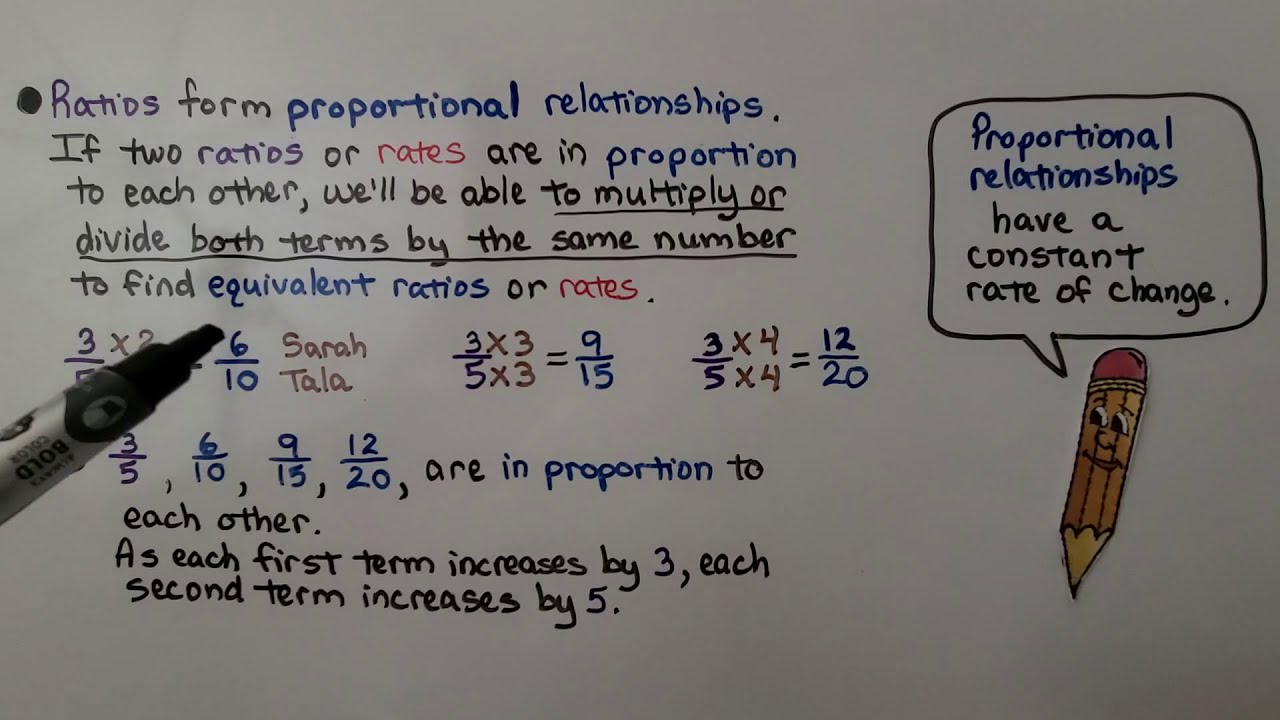 Ratios form proportional relationships.
If two ratios or rates are in proportion
to each other, we'll be able to multiply or
divide both terms by the same number
to find equivalent ratios or rates.
3 x 2 = 6 Sarah
10 Tala
3 x 3 = 9
5 x 3 15
3 x 4 = 12
5 x 4 20
3/5, 6/10, 9/15, 12/20, are in proportion to
each other.
As each first term increases by 3, each
second term increases by 5.
Proportional
relationships
have a
constant
rate of change.
BOLD
COLOR